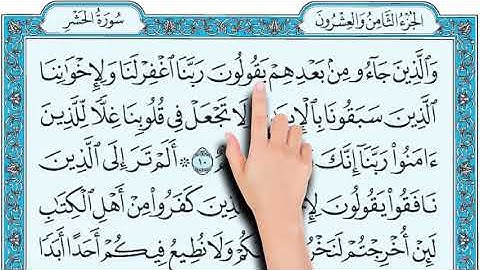 الجُزْءُ الثَّامِنُ وَالعِشْرُونَ سُورَةُ الحَشْرِ
وَٱلَّذِينَ جَآءُو مِنۢ بَعْدِهِمْ يَقُولُونَ رَبَّنَا ٱغْفِرْ لَنَا وَلِإِخْوَٰنِنَا
ٱلَّذِينَ سَبَقُونَا لَا تَجْعَلْ فِى قُلُوبِنَا غِلًّا لِّلَّذِينَ
ءَامَنُوا۟ رَبَّنَآ إِنَّكَ ١٠ ۞ أَلَمْ تَرَ إِلَى ٱلَّذِينَ
نَافَقُوا۟ يَقُولُونَ ٱلَّذِينَ كَفَرُوا۟ مِنْ أَهْلِ ٱلْكِتَٰبِ
لَئِنْ أُخْرِجْتُمْ وَلَا نُطِيعُ فِيكُمْ أَحَدًا أَبَدًا